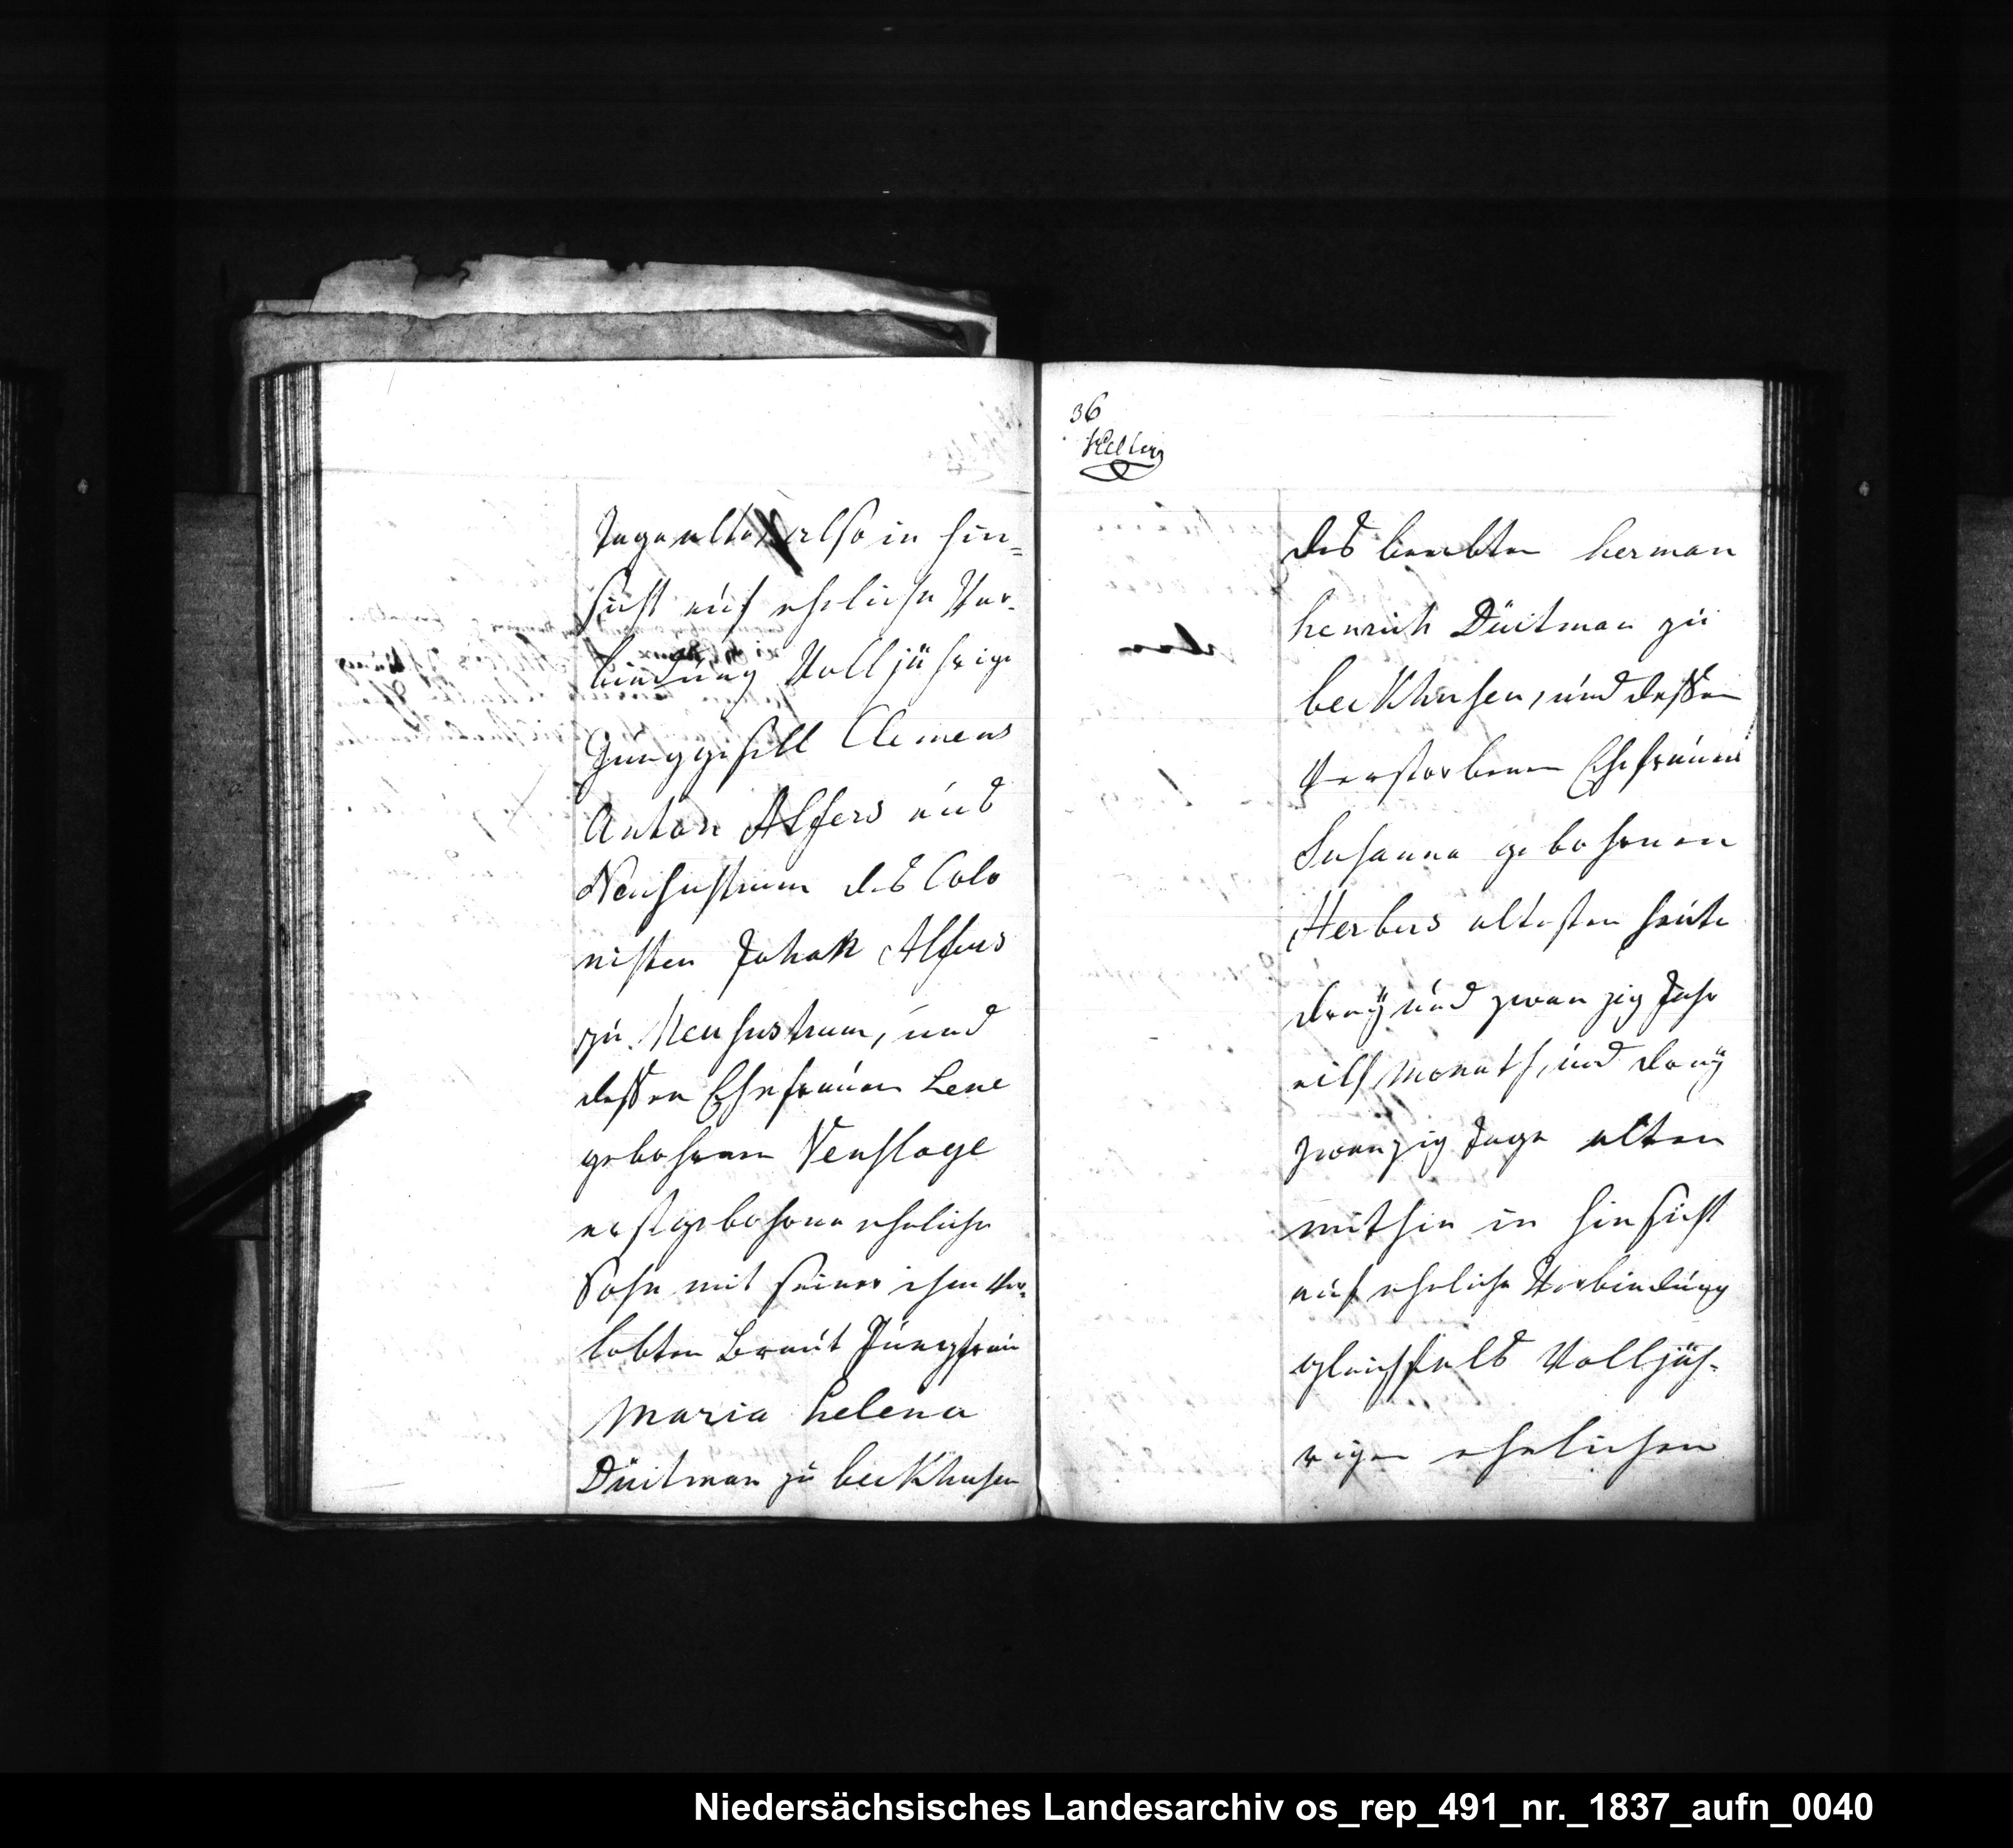 Tage alte also in hin=
sicht auf eheliche Ver-
bindung Volljährige
Junggesell Clemens
Anton Alfers aus
Neusustrum des Colo
nisten Johan Alfers
zu Neusustrum, und
dessen Ehefrauen Lene
gebohrnen Venslage
erstgebohrne eheliche
Sohn mit seiner ihm Ver-
lobten Braut Jungfrau
Maria helena
Düitman zu beckhusen
36
des beerbten herman
henrich Düitman zu
beckhusen, und dessen
Verstorbenen Ehefrauen
Susanna gebohrnen
Herbers altesten heute
dreÿ und zwanzig Jahr
eilf Monath, und dreÿ
zwanzig Tage alten
mithin in hinsicht
auf eheliche Verbindung
gleichfals Volljäh-
rigen ehelichen
Niedersächsisches Landesarchiv os_rep_491_nr._1837_aufn_0040